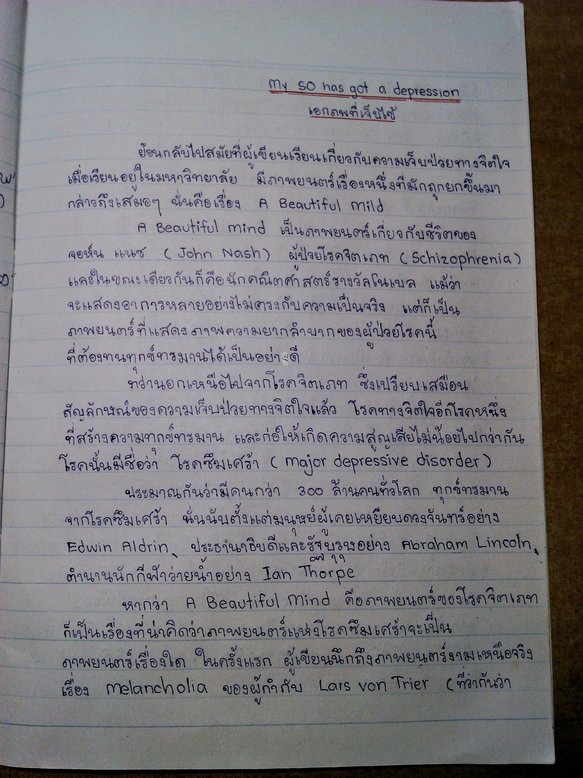 My SO has got a depression
เอกภพที่เจ็บไข้
ย้อนกลับไปสมัยที่ผู้เขียนเรียนเกี่ยวกับความเจ็บป่วยทางจิตใจ
เมื่อเรียนอยู่ในมหาวิทยาลัย มีภาพยนตร์เรื่องหนึ่งที่มักถูกยกขึ้นมา
กล่าวถึงเสมอๆ นั่นคือเรื่อง A Beautiful Mild
A Beautiful mind เป็นภาพยนตร์เกี่ยวกับชีวิตของ
จอห์น แนช (John Nash) ผู้ป่วยโรคจิตเภท (Schizophrenia)
และในขณะเดียวกันก็คือนักคณิตศาสตร์รางวัลโนเบล แม้ว่า
จะแสดงอาการหลายอย่างไม่ตรงกับความเป็นจริง แต่ก็เป็น
ภาพยนตร์ที่แสดงภาพความยากลำบากของผู้ป่วยโรคนี้
ที่ต้องทนทุกข์ทรมานได้เป็นอย่างดี
ทว่านอกเหนือไปจากโรคจิตเภท ซึ่งเปรียบเสมือน
สัญลักษณ์ของความเจ็บป่วยทางจิตใจแล้ว โรคทางจิตใจอีกโรคหนึ่ง
ที่สร้างความทุกข์ทรมาน และก่อให้เกิดความสูญเสียไม่น้อยไปกว่ากัน
โรคนั้นมีชื่อว่า โรคซึมเศร้า (major depressive disorder)
ประมาณกันว่ามีคนกว่า 300 ล้านคนทั่วโลก ทุกข์ทรมาน
จากโรคซึมเศร้า นั่นนับตั้งแต่มนุษย์ผู้เคยเหยียบดวงจันทร์อย่าง
Edwin Aldrin, ประธานาธิบดีและรัฐบุรุษอย่าง Abraham Lincoln,
ตำนานนักกีฬาว่ายน้ำอย่าง Ian Thorpe
หากว่า A Beautiful Mind คือภาพยนตร์ของโรคจิตเภท
ก็เป็นเรื่องที่น่าคิดว่าภาพยนตร์แห่งโรคซึมเศร้าจะเป็น
ภาพยนตร์เรื่องใด ในครั้งแรก ผู้เขียนนึกถึงภาพยนตร์งามเหนือจริง
เรื่อง Melancholia ของผู้กำกับ Lars von Trier (ที่ว่ากันว่า